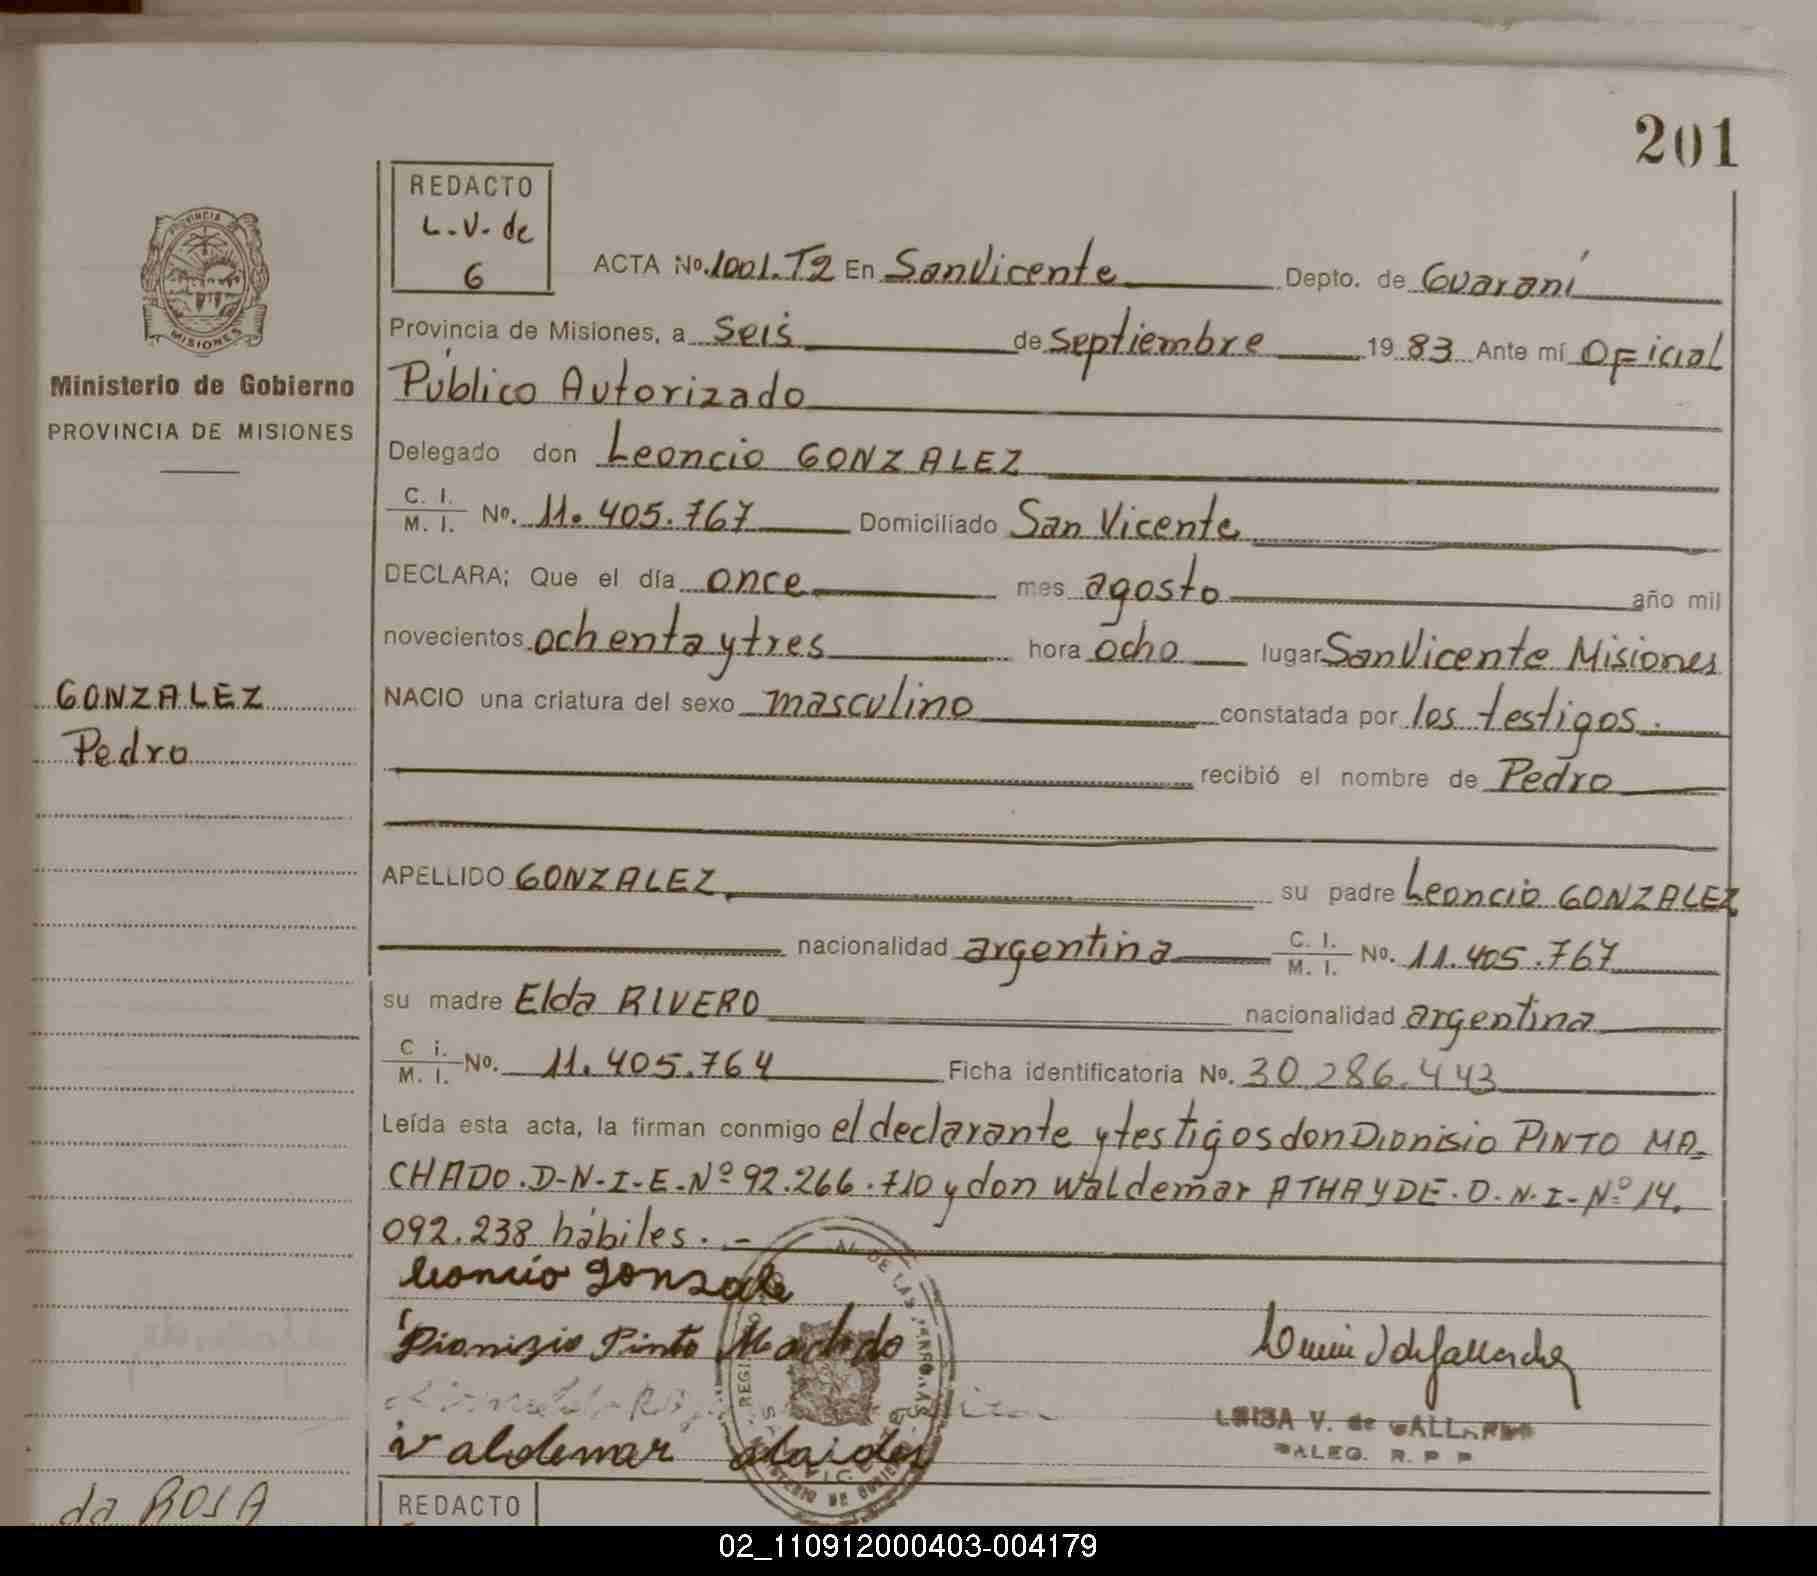 201
REDACTO
L.V. de
G
ACTA No. 1001.T2 En San Vicente Depto. de Guaraní
Provincia de Misiones, a seis de septiembre 1983 Ante mí Oficial
Público Autorizado
Delegado don Leoncio GONZALEZ
C. I.
M. I. No. 11.405.767 Domiciliado San Vicente
DECLARA; Que el día once mes agosto año mil
novecientos ochenta y tres hora ocho lugar San Vicente Misiones
NACIO una criatura del sexo masculino constatada por los testigos.
recibió el nombre de Pedro
APELLIDO GONZALEZ su padre Leoncio GONZALEZ
nacionalidad argentina C. I.
M. I. No. 11.405.767
su madre Elda RIVERO nacionalidad argentina
C i.
M. I. No. 11.405.764 Ficha identificatoria No. 30.286.443
Leída esta acta, la firman conmigo el declarante y testigos don Dionisio PINTO MA-
CHADO.D-N-I-E-Nº 92.266.710 y don Waldemar ATHAYDE. D.N.I-Nº 14.
092.238 hábiles.-
PROVINCIA
MISIONES
Ministerio de Gobierno
PROVINCIA DE MISIONES
GONZALEZ
Pedro
Leoncio Gonzale
Dionizio Pinto Machado
Valdemar ataides
LUISA V. de GALLARDO
DALEG. R. P P
da ROSA
REDACTO
02_110912000403-004179